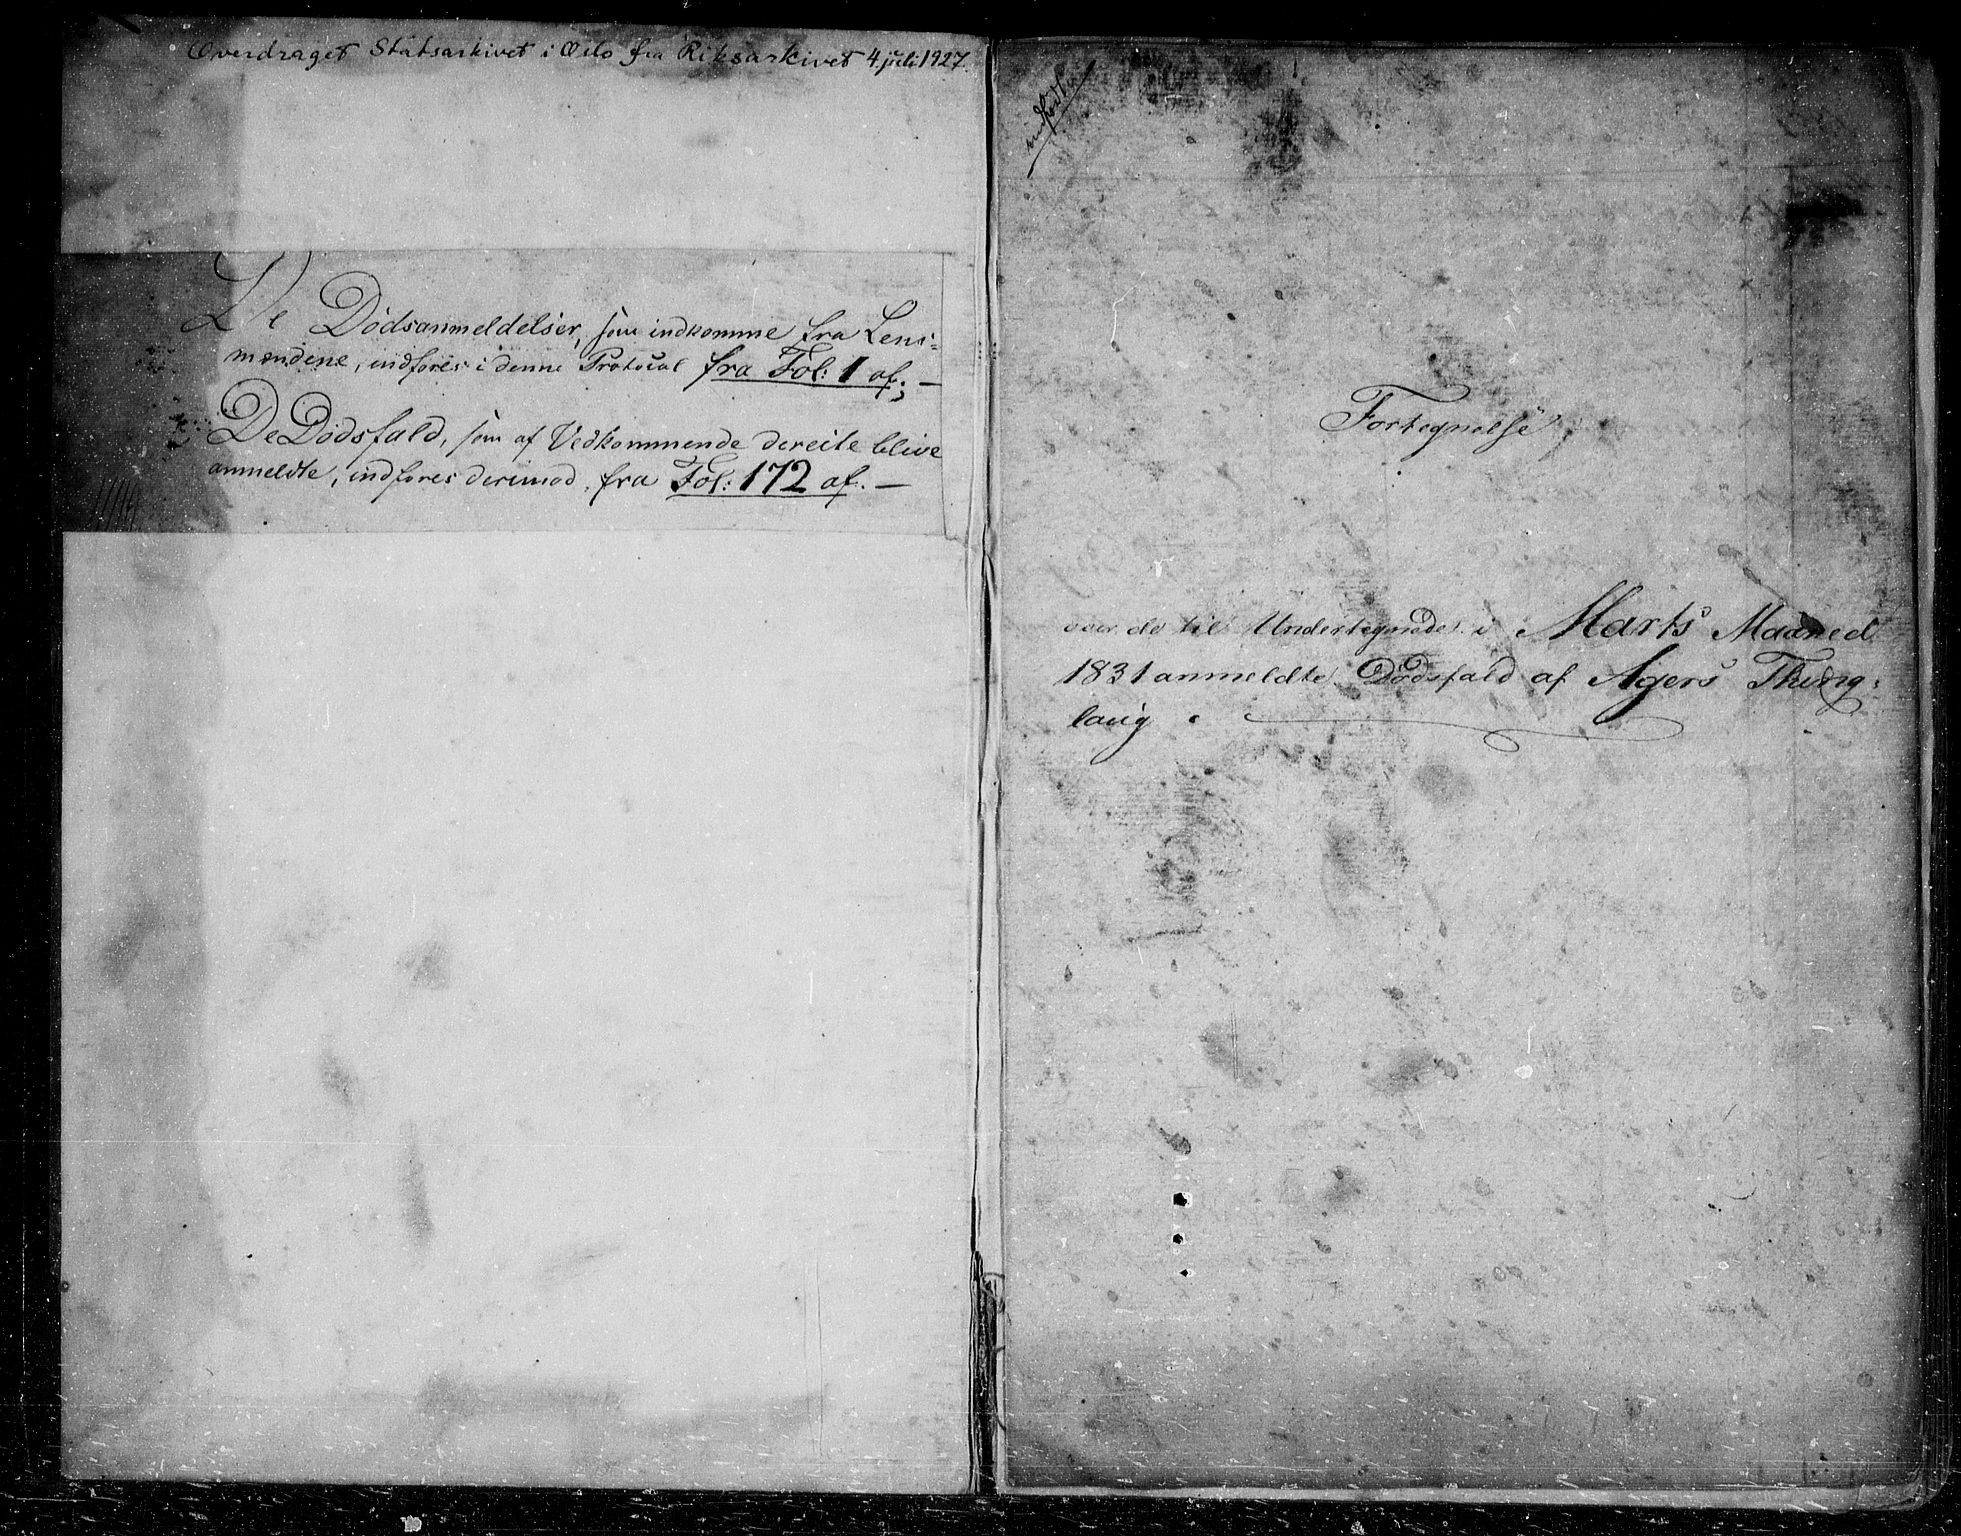 Overdraget Statsarkivet i Oslo fra Riksarkivet 4. juli 1927.
De Dødsanmeldelser, som indkomme fra Lens-
mændene, indføres i denne Protocol fra Fol: 1 af; —
De Dødsfald, som af Vedkommende dereite blive
anmeldte, indføres derimod, fra Fol: 172 af. —
Fortegnelse
over de til Undertegnede i Marts Maaned
1831 anmeldte Dødsfald af Agers Thing-
laug.